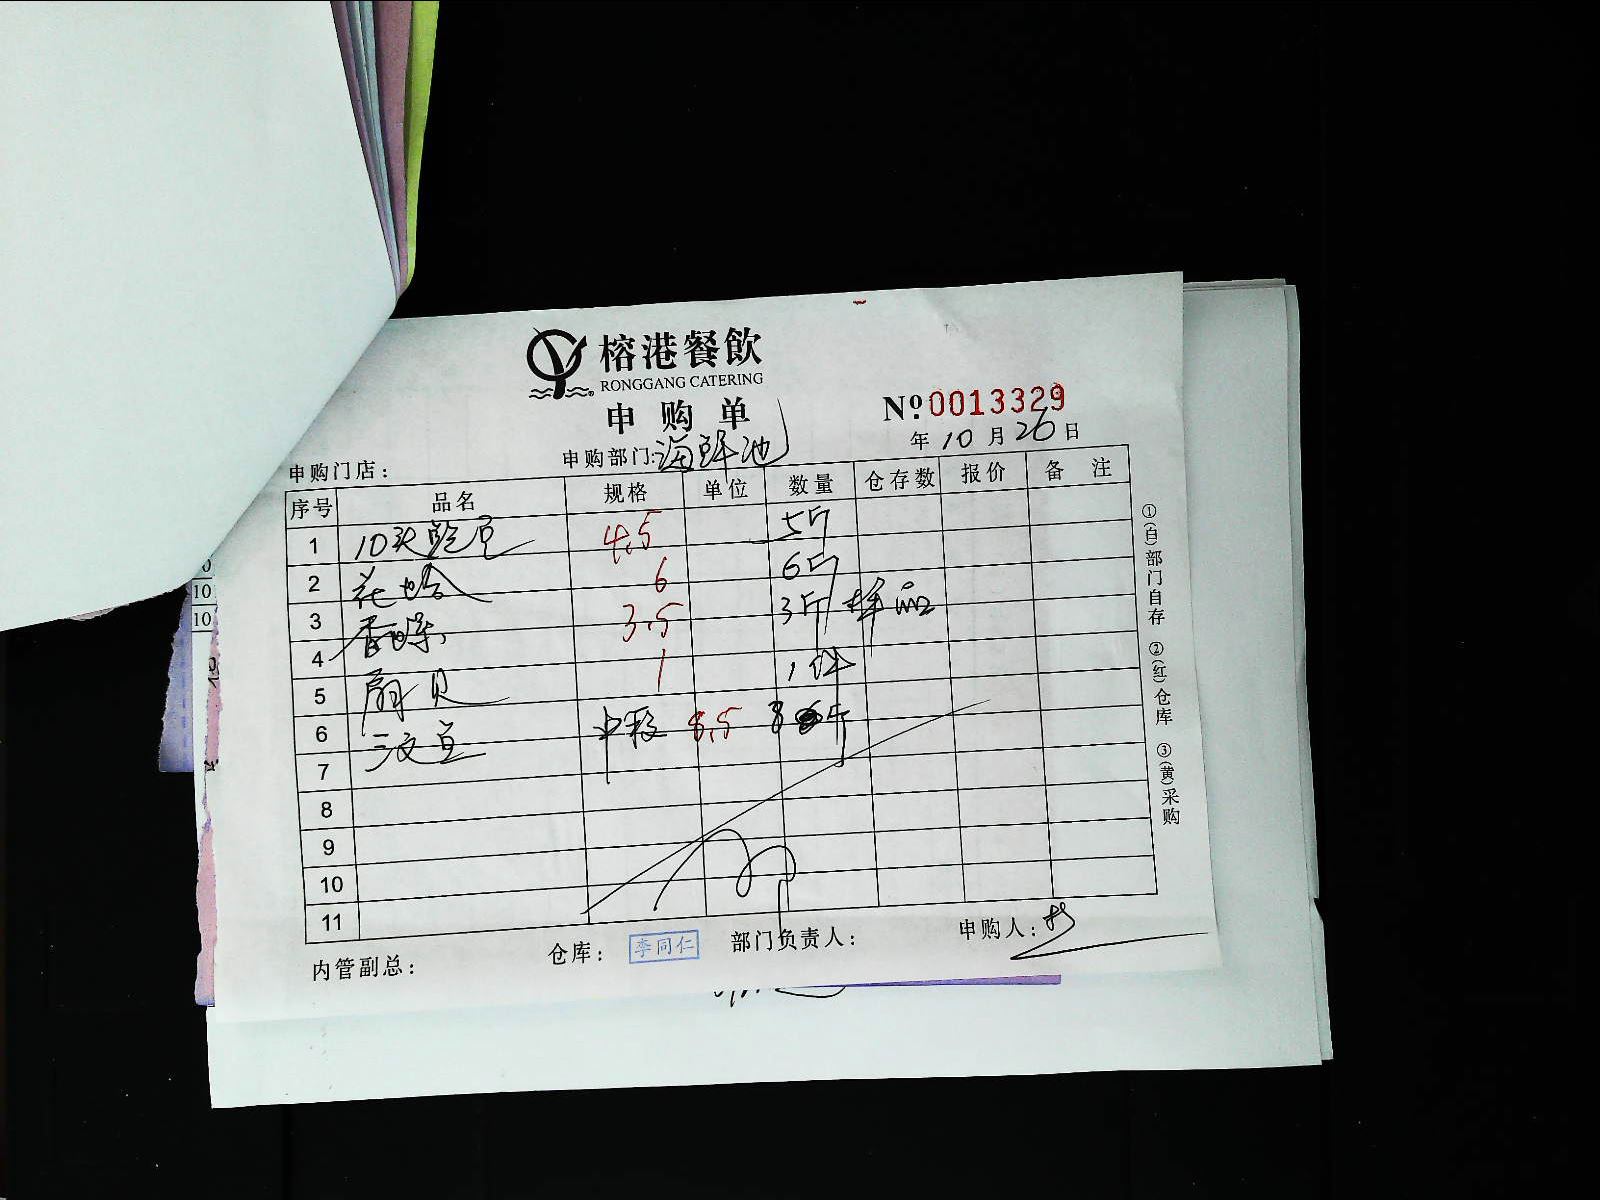 榕港餐飲
RONGGANG CATERING
申购单
Nº 0013329
年 10 月 26 日
申购门店： 申购部门：海鲜池
序号 品名 规格 单位 数量 仓存数 报价 备 注
1 10头鲍鱼 4.5 5斤
2 花蛤 6 6斤
3 香螺 3.5 3斤 样品
4 扇贝 1 1件
5 三文鱼 中段 8.5 8斤
6
7
8
9
10
11
内管副总： 仓库： 李同仁 部门负责人： 申购人：
①(白)部门自存 ②(红)仓库 ③(黄)采购
10
10